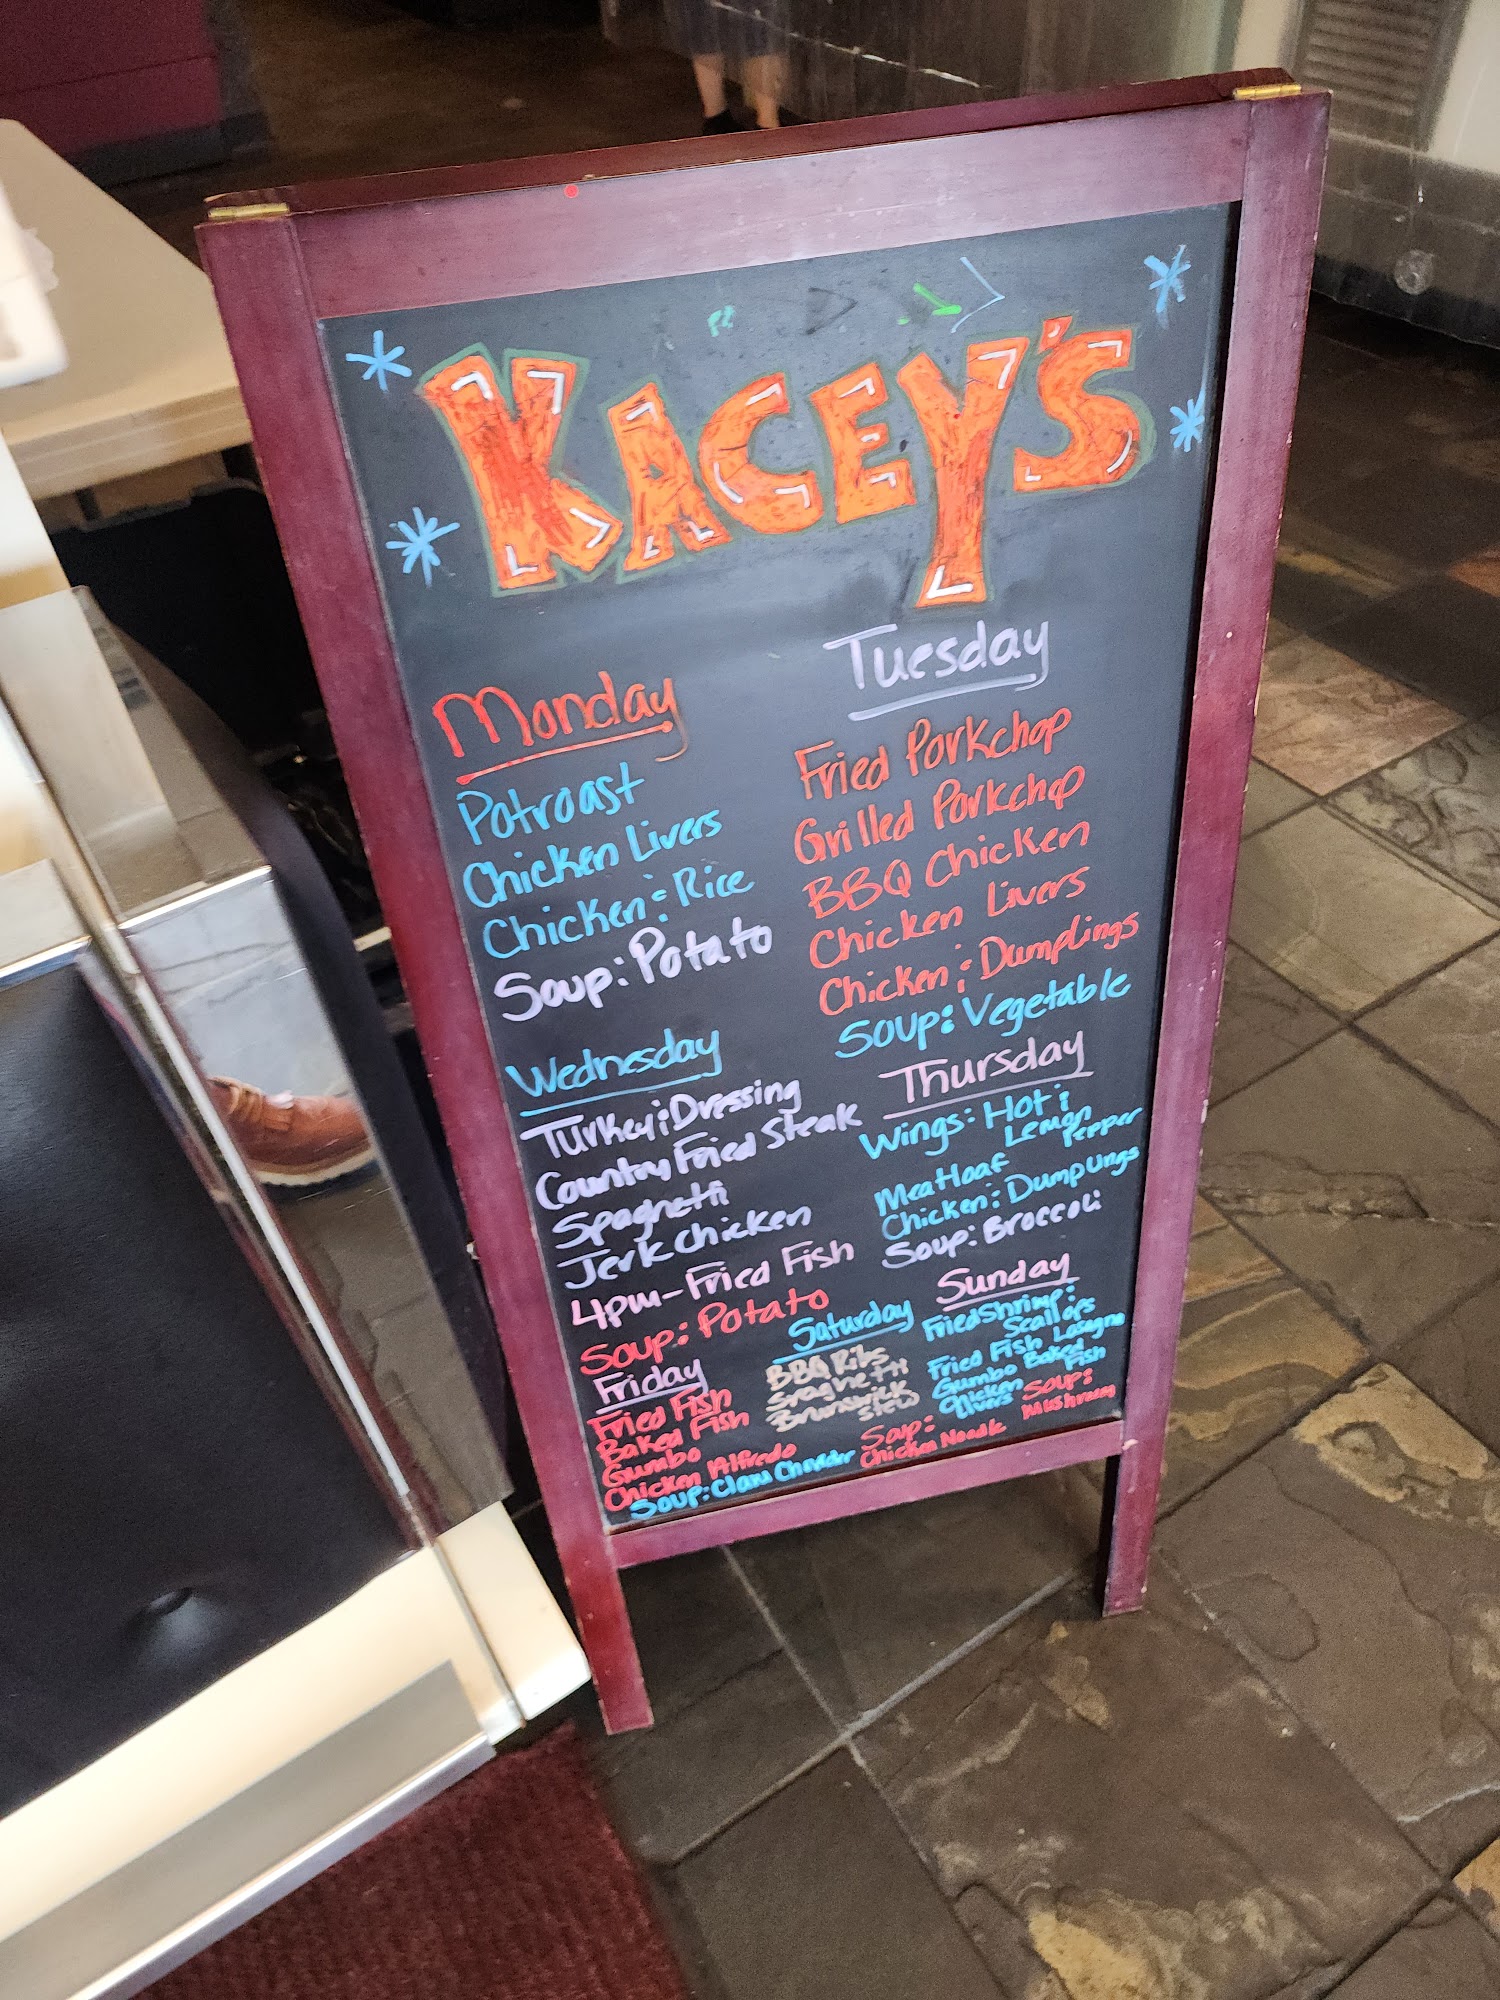 KACEY'S
Monday
Potroast
Chicken Livers
Chicken & Rice
Soup: Potato
Tuesday
Fried Porkchop
Grilled Porkchop
BBQ Chicken
Chicken Livers
Chicken & Dumplings
Soup: Vegetable
Wednesday
Turkey & Dressing
Country Fried Steak
Spaghetti
Jerk Chicken
4pm - Fried Fish
Soup: Potato
Thursday
Wings: Hot &
Lemon
Pepper
Meatloaf
Chicken & Dumplings
Soup: Broccoli
Friday
Fried Fish
Baked Fish
Gumbo
Chicken Alfredo
Soup: Clam Chowder
Saturday
BBQ Ribs
Spaghetti
Brunswick
Stew
Soup:
Chicken Noodle
Sunday
Fried Shrimp &
Scallops
Fried Fish Lasagna
Gumbo Baked
Fish
Chicken
Livers
Soup:
Mushroom